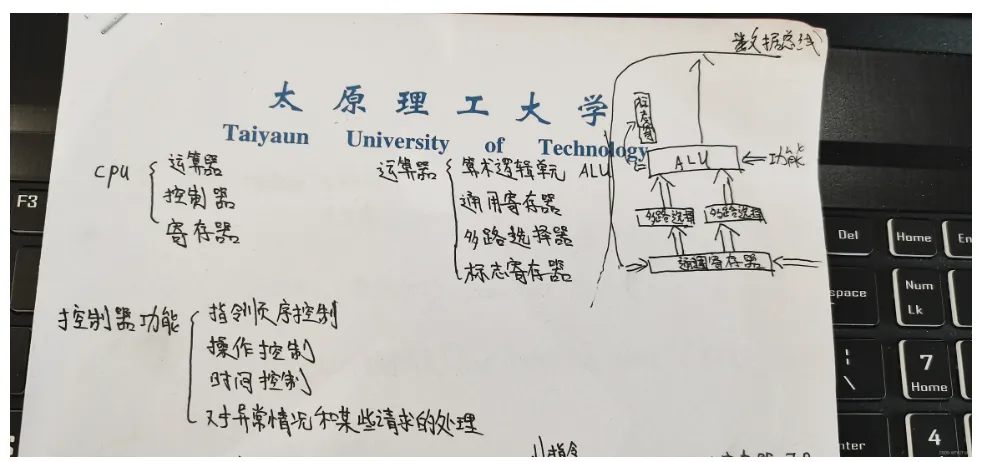 数据总线
太原理工大学
Taiyaun University of Technology
标志寄
ALU
功能
多路选择 多路选择
通通寄存器
cpu
运算器
控制器
寄存器
运算器
算术逻辑单元 ALU
通用寄存器
多路选择器
标志寄存器
控制器功能
指令顺序控制
操作控制
时间控制
对于异常情况和某些请求的处理
指令
F3
Del
Home
En
space
Num
Lk
7
Home
\
nter
4